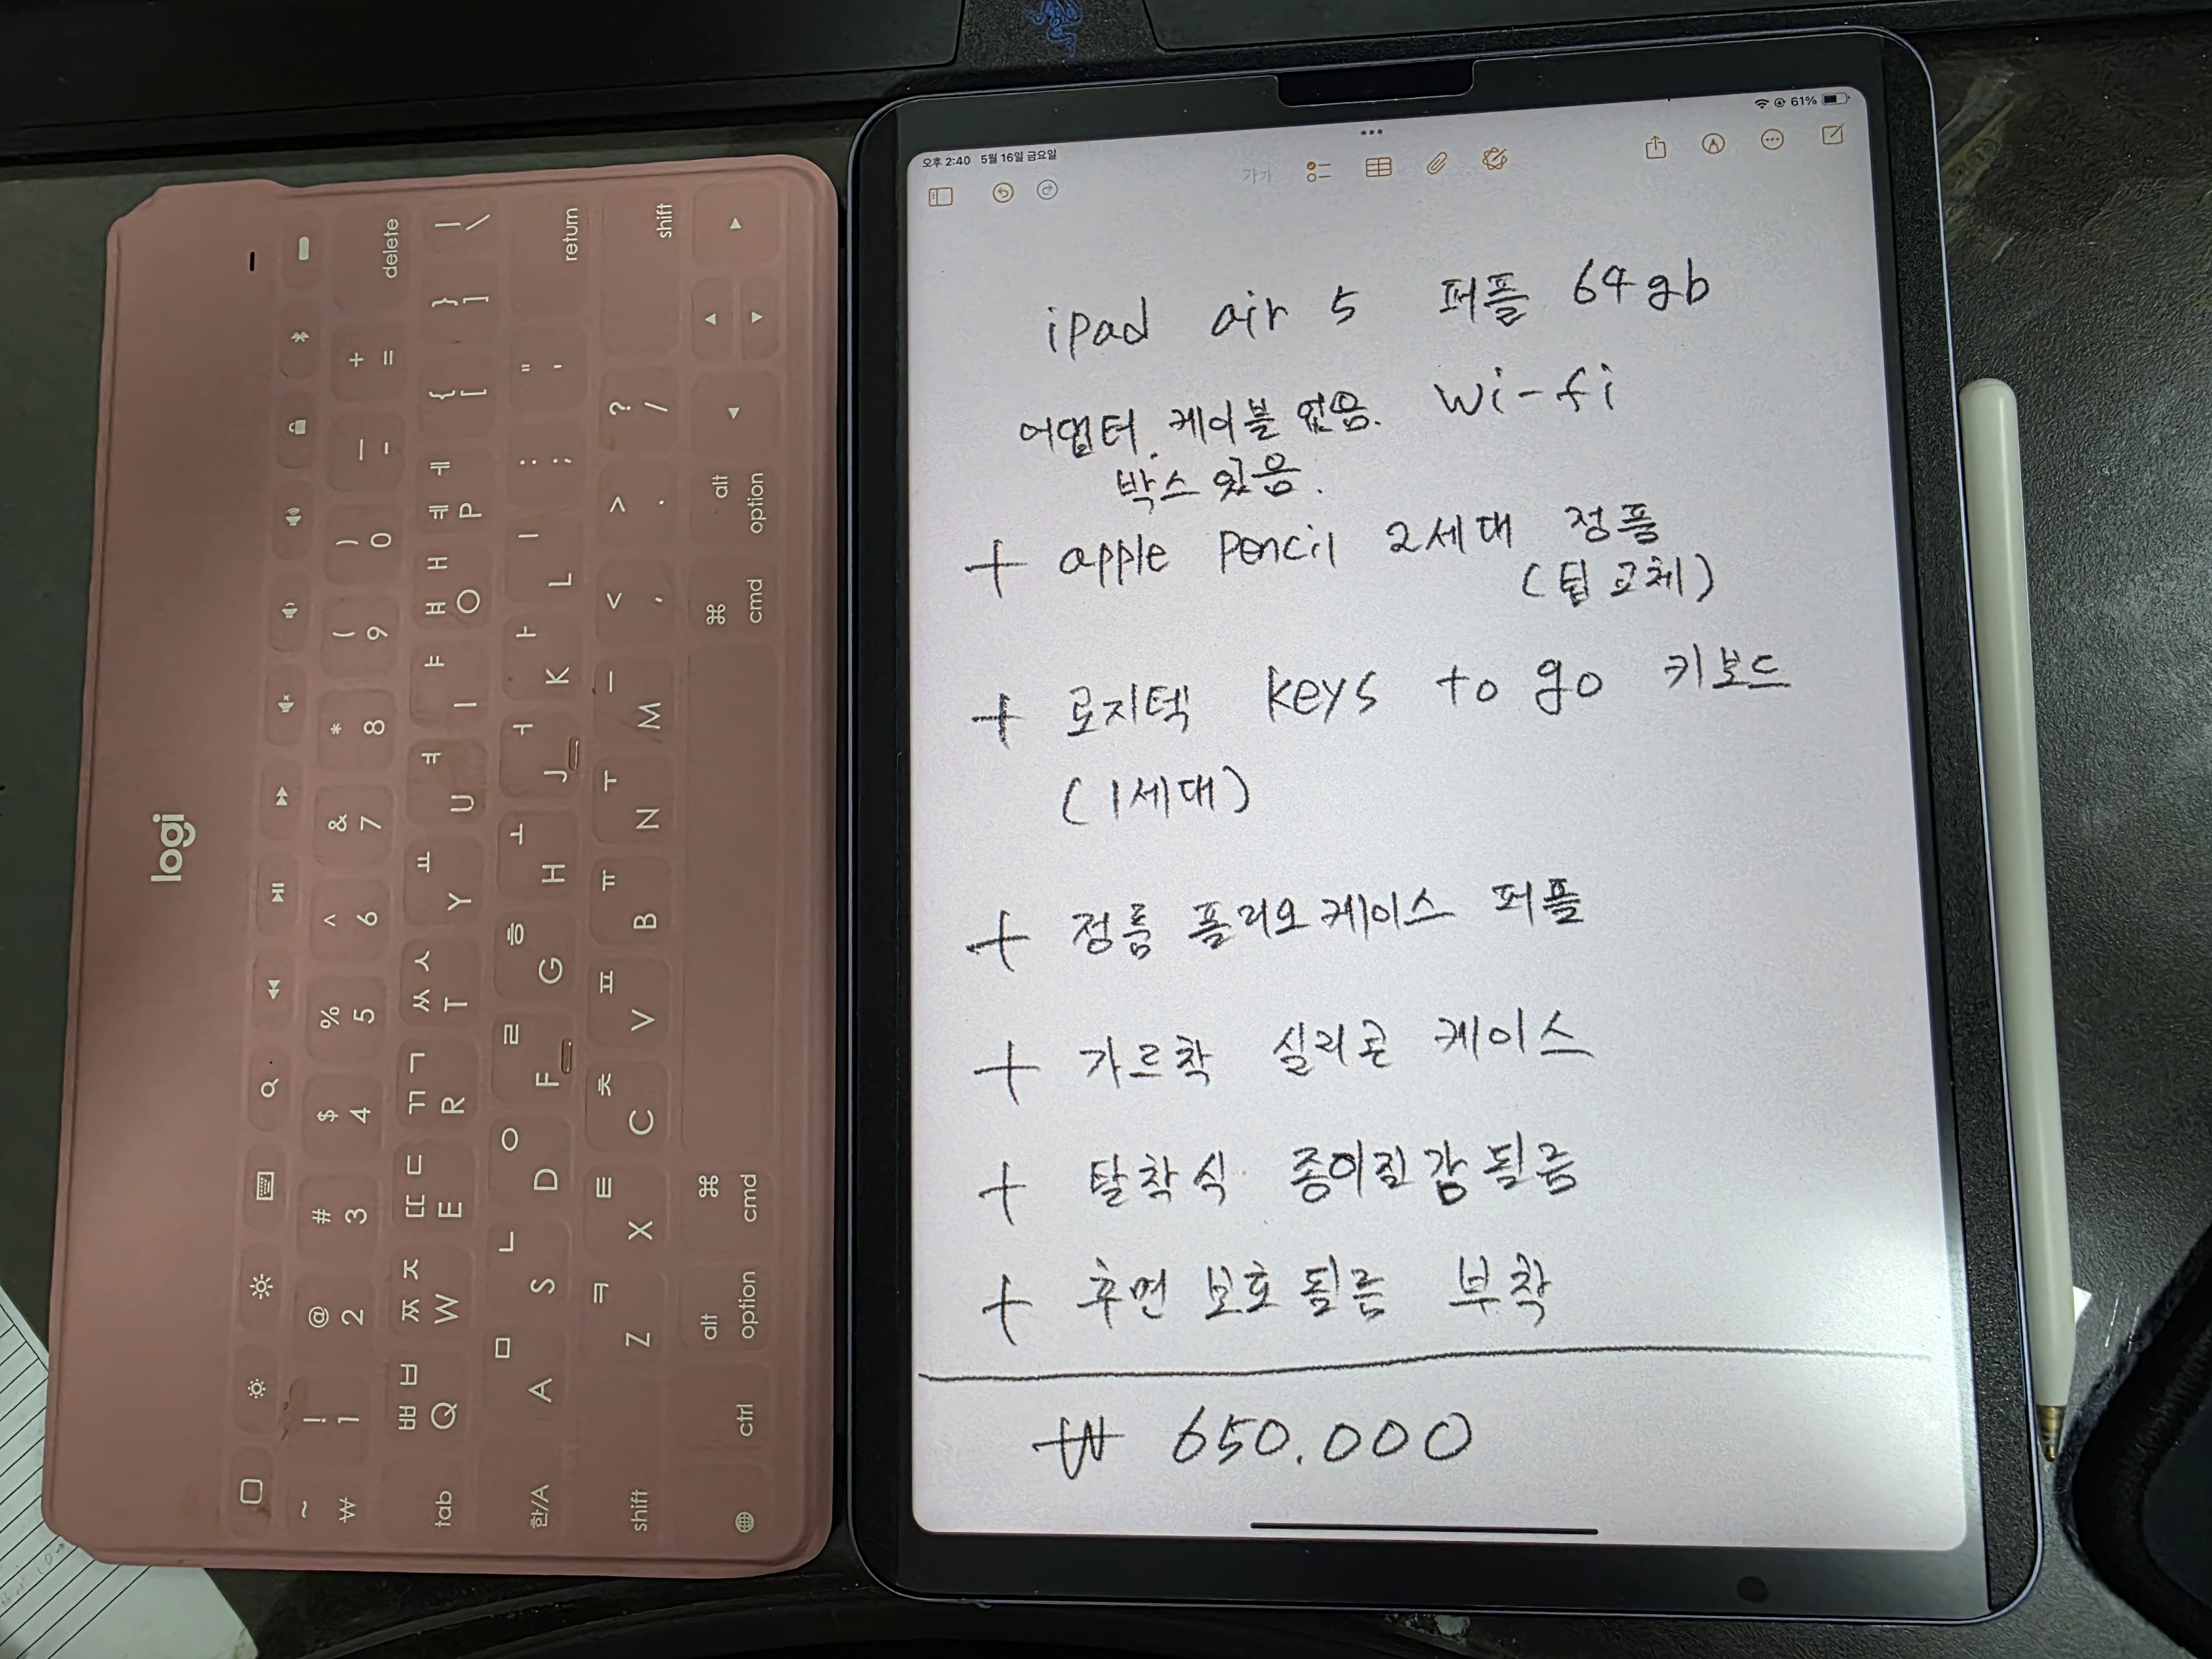 logi
delete
return
shift
tab
한/A
shift
~ ₩
! 1
@ 2
# 3
$ 4
% 5
^ 6
& 7
* 8
( 9
) 0
— -
+ =
ㅃ ㅂ Q
ㅉ ㅈ W
ㄸ ㄷ E
ㄲ ㄱ R
ㅆ ㅅ T
ㅛ Y
ㅕ U
ㅑ I
ㅒ ㅐ O
ㅖ ㅔ P
{ [
} ]
| \
ㅁ A
ㄴ S
ㅇ D
ㄹ F
ㅎ G
ㅗ H
ㅓ J
ㅏ K
ㅣ L
: ;
" '
ㅋ Z
ㅌ X
ㅊ C
ㅍ V
ㅠ B
ㅜ N
ㅡ M
< ,
> .
? /
ctrl
alt option
⌘ cmd
⌘ cmd
alt option
오후 2:40 5월 16일 금요일
61%
가가
ipad air 5 퍼플 64gb
어댑터. 케이블 없음. wi-fi
박스 있음.
+ apple pencil 2세대 정품
(팁교체)
+ 로지텍 keys to go 키보드
(1세대)
+ 정품 폴리오케이스 퍼플
+ 가르착 실리콘 케이스
+ 탈착식 종이질감필름
+ 후면보호필름 부착
₩ 650.000